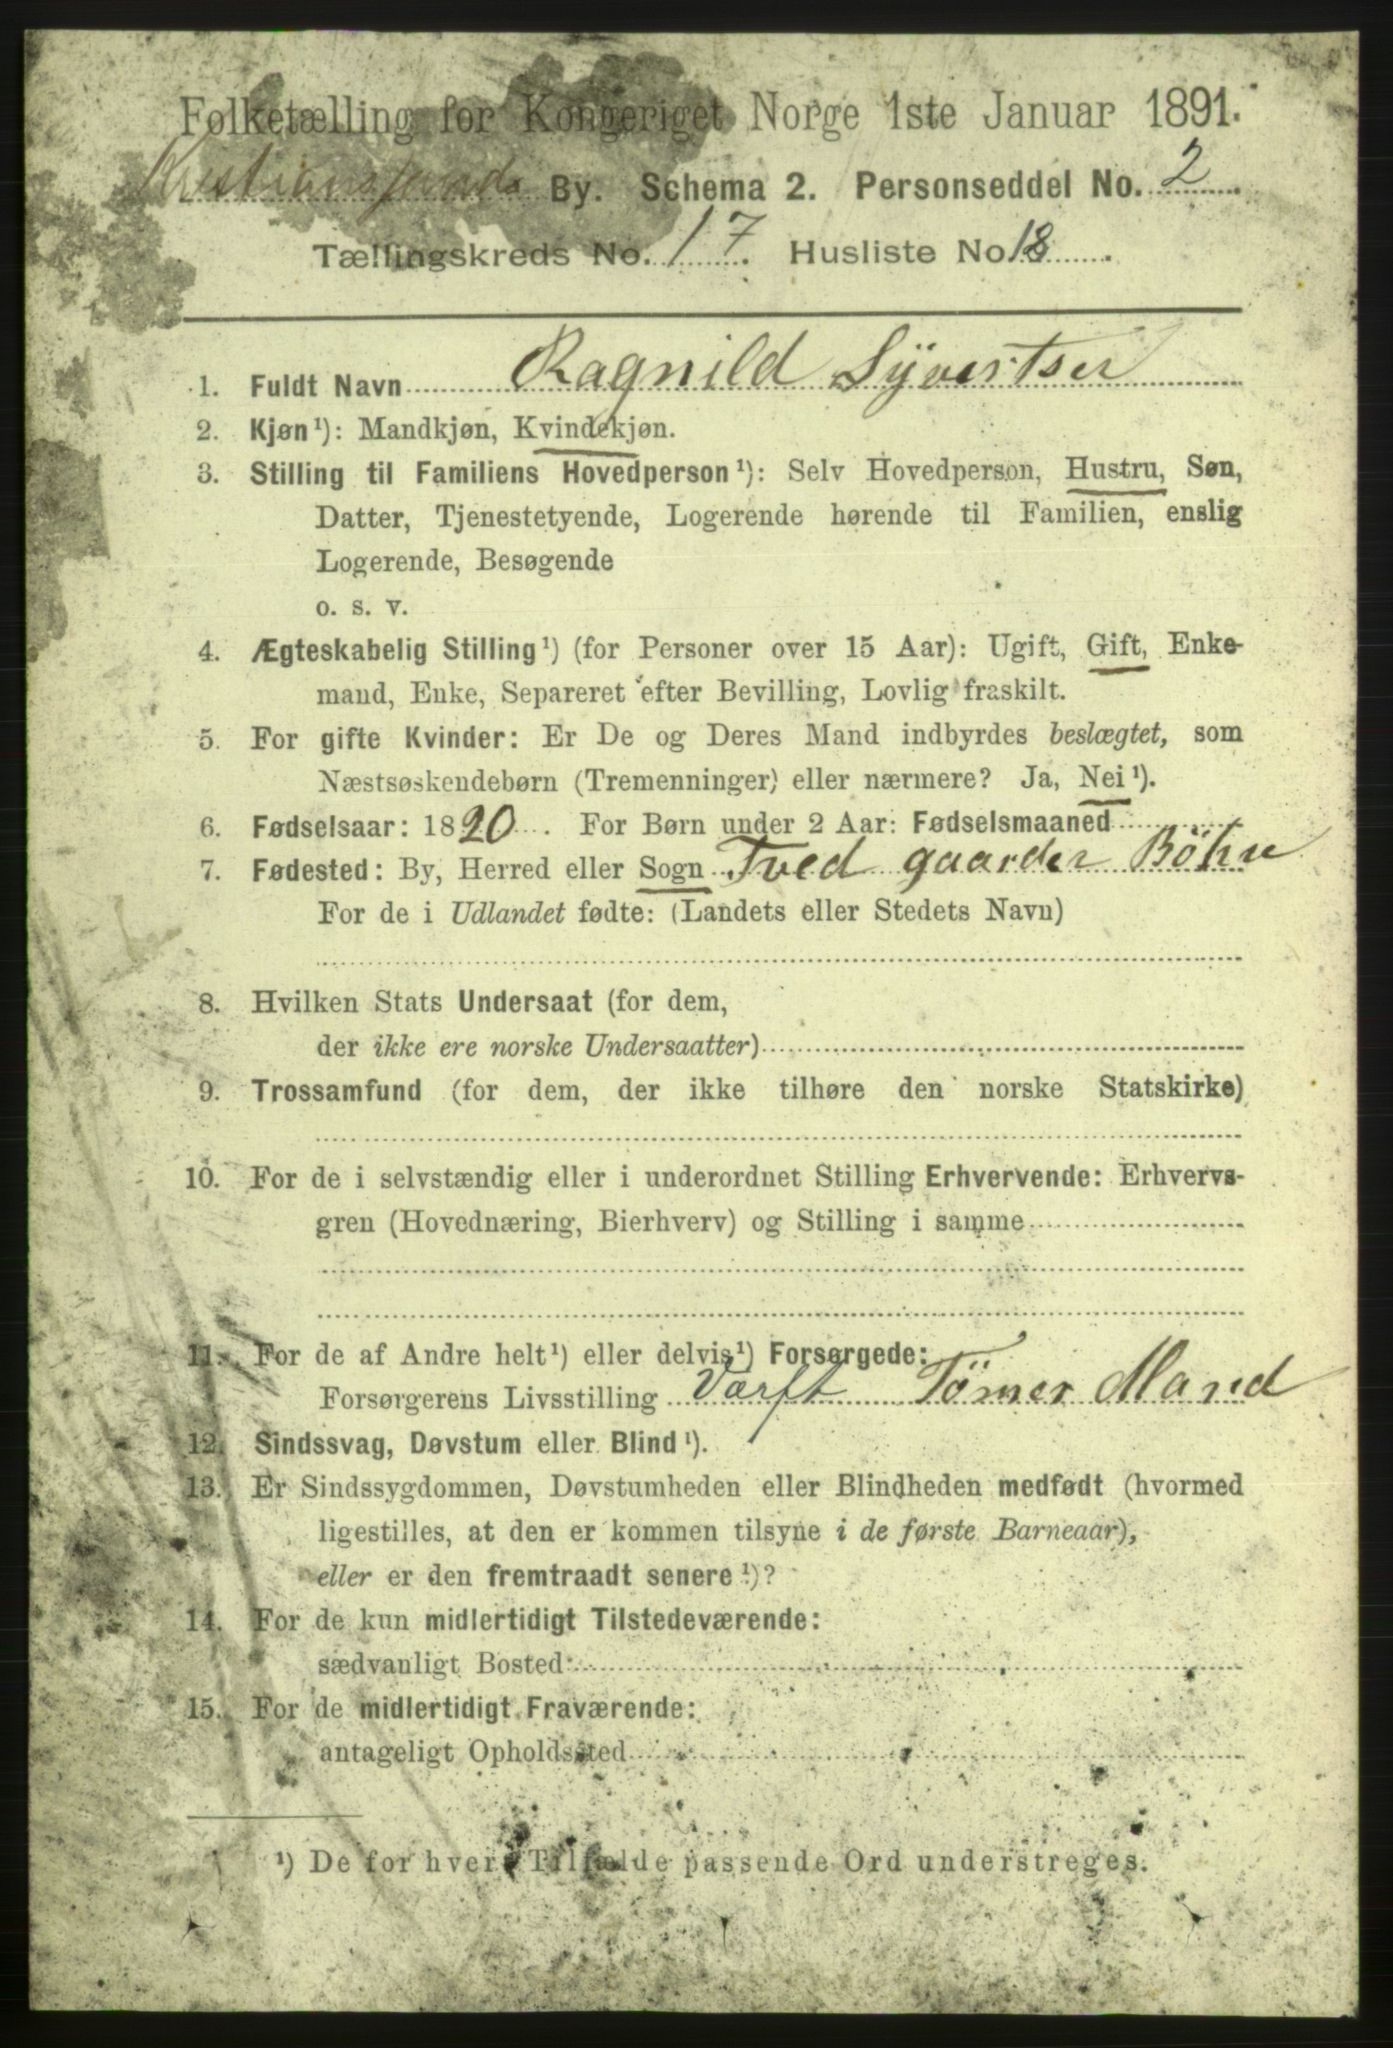 Folketælling for Kongeriget Norge 1ste Januar 1891.
Kristianssands By. Schema 2. Personseddel No. 2.
Tællingskreds No. 17. Husliste No 18.
1. Fuldt Navn Ragnild Syvertsen
2. Kjøn¹): Mandkjøn, Kvindekjøn.
3. Stilling til Familiens Hovedperson¹): Selv Hovedperson, Hustru, Søn,
Datter, Tjenestetyende, Logerende hørende til Familien, enslig
Logerende, Besøgende
o. s. v.
4. Ægteskabelig Stilling¹) (for Personer over 15 Aar): Ugift, Gift, Enke-
mand, Enke, Separeret efter Bevilling, Lovlig fraskilt.
5. For gifte Kvinder: Er De og Deres Mand indbyrdes beslægtet, som
Næstsøskendebørn (Tremenninger) eller nærmere? Ja, Nei¹).
6. Fødselsaar: 1820. For Børn under 2 Aar: Fødselsmaaned
7. Fødested: By, Herred eller Sogn Tved gaarden Böhn
For de i Udlandet fødte: (Landets eller Stedets Navn)
8. Hvilken Stats Undersaat (for dem,
der ikke ere norske Undersaatter)
9. Trossamfund (for dem, der ikke tilhøre den norske Statskirke)
10. For de i selvstændig eller i underordnet Stilling Erhvervende: Erhvervs-
gren (Hovednæring, Bierhverv) og Stilling i samme
11. For de af Andre helt¹) eller delvis¹) Forsørgede:
Forsørgerens Livsstilling Værft Tömer Mand
12. Sindssvag, Døvstum eller Blind¹).
13. Er Sindssygdommen, Døvstumheden eller Blindheden medfødt (hvormed
ligestilles, at den er kommen tilsyne i de første Barneaar),
eller er den fremtraadt senere¹)?
14. For de kun midlertidigt Tilstedeværende:
sædvanligt Bosted
15. For de midlertidigt Fraværende:
antageligt Opholdssted
¹) De for hvert Tilfælde passende Ord understreges.